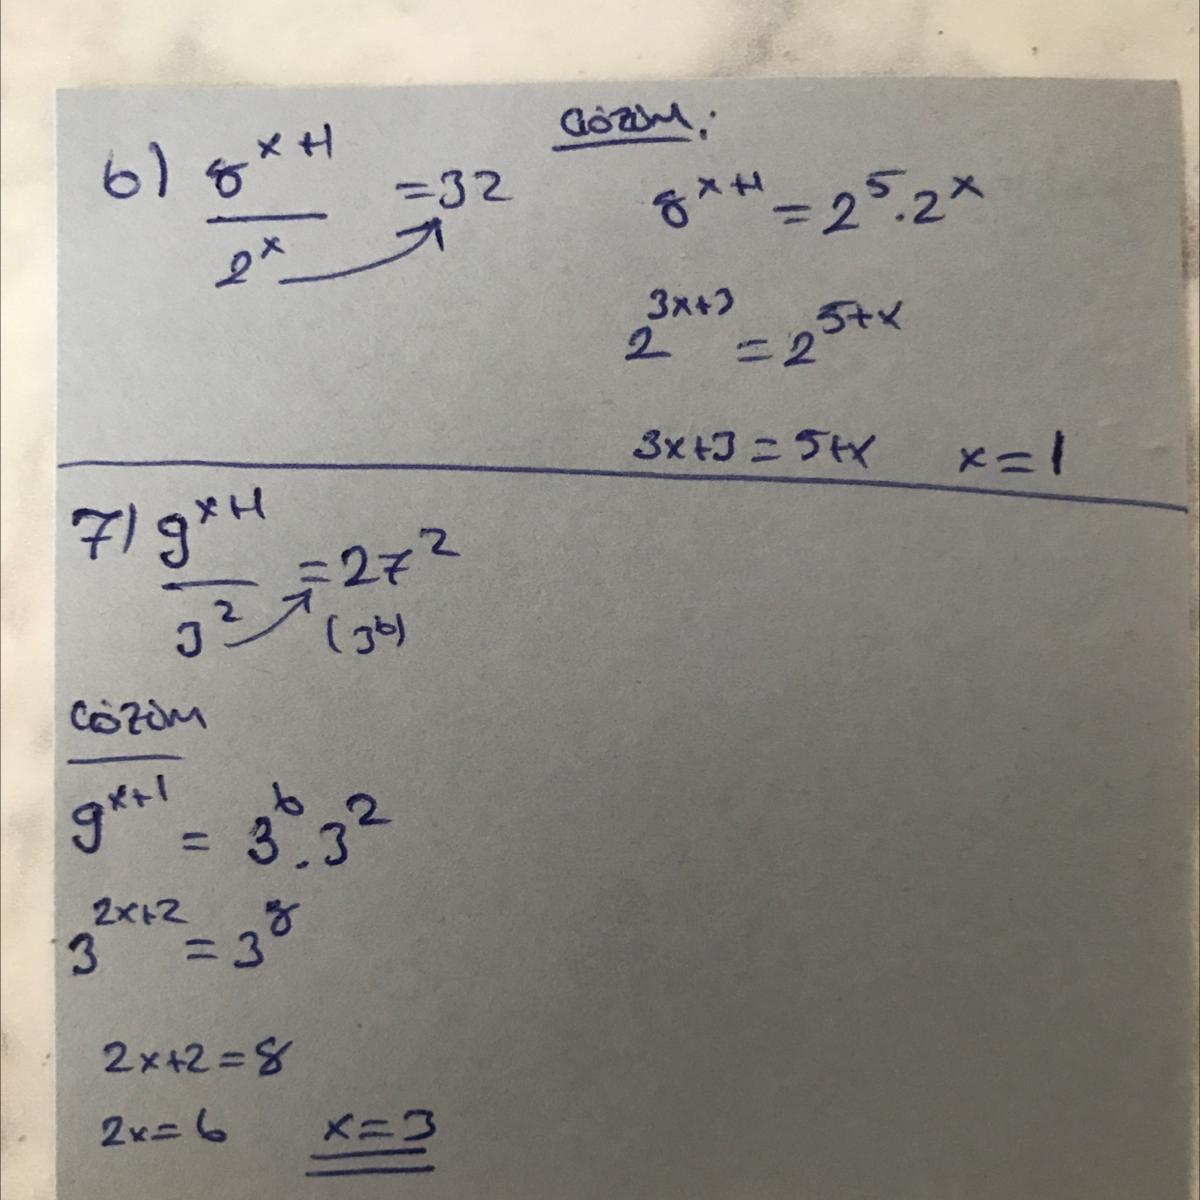 6) 8^(x+1) / 2^x = 32
Çözüm:
8^(x+1) = 2^5 . 2^x
2^(3x+3) = 2^(5+x)
3x+3 = 5+x    x = 1
7) 9^(x+1) / 3^2 = 27^2
(3^6)
Çözüm
9^(x+1) = 3^6 . 3^2
3^(2x+2) = 3^8
2x+2 = 8
2x = 6    x = 3